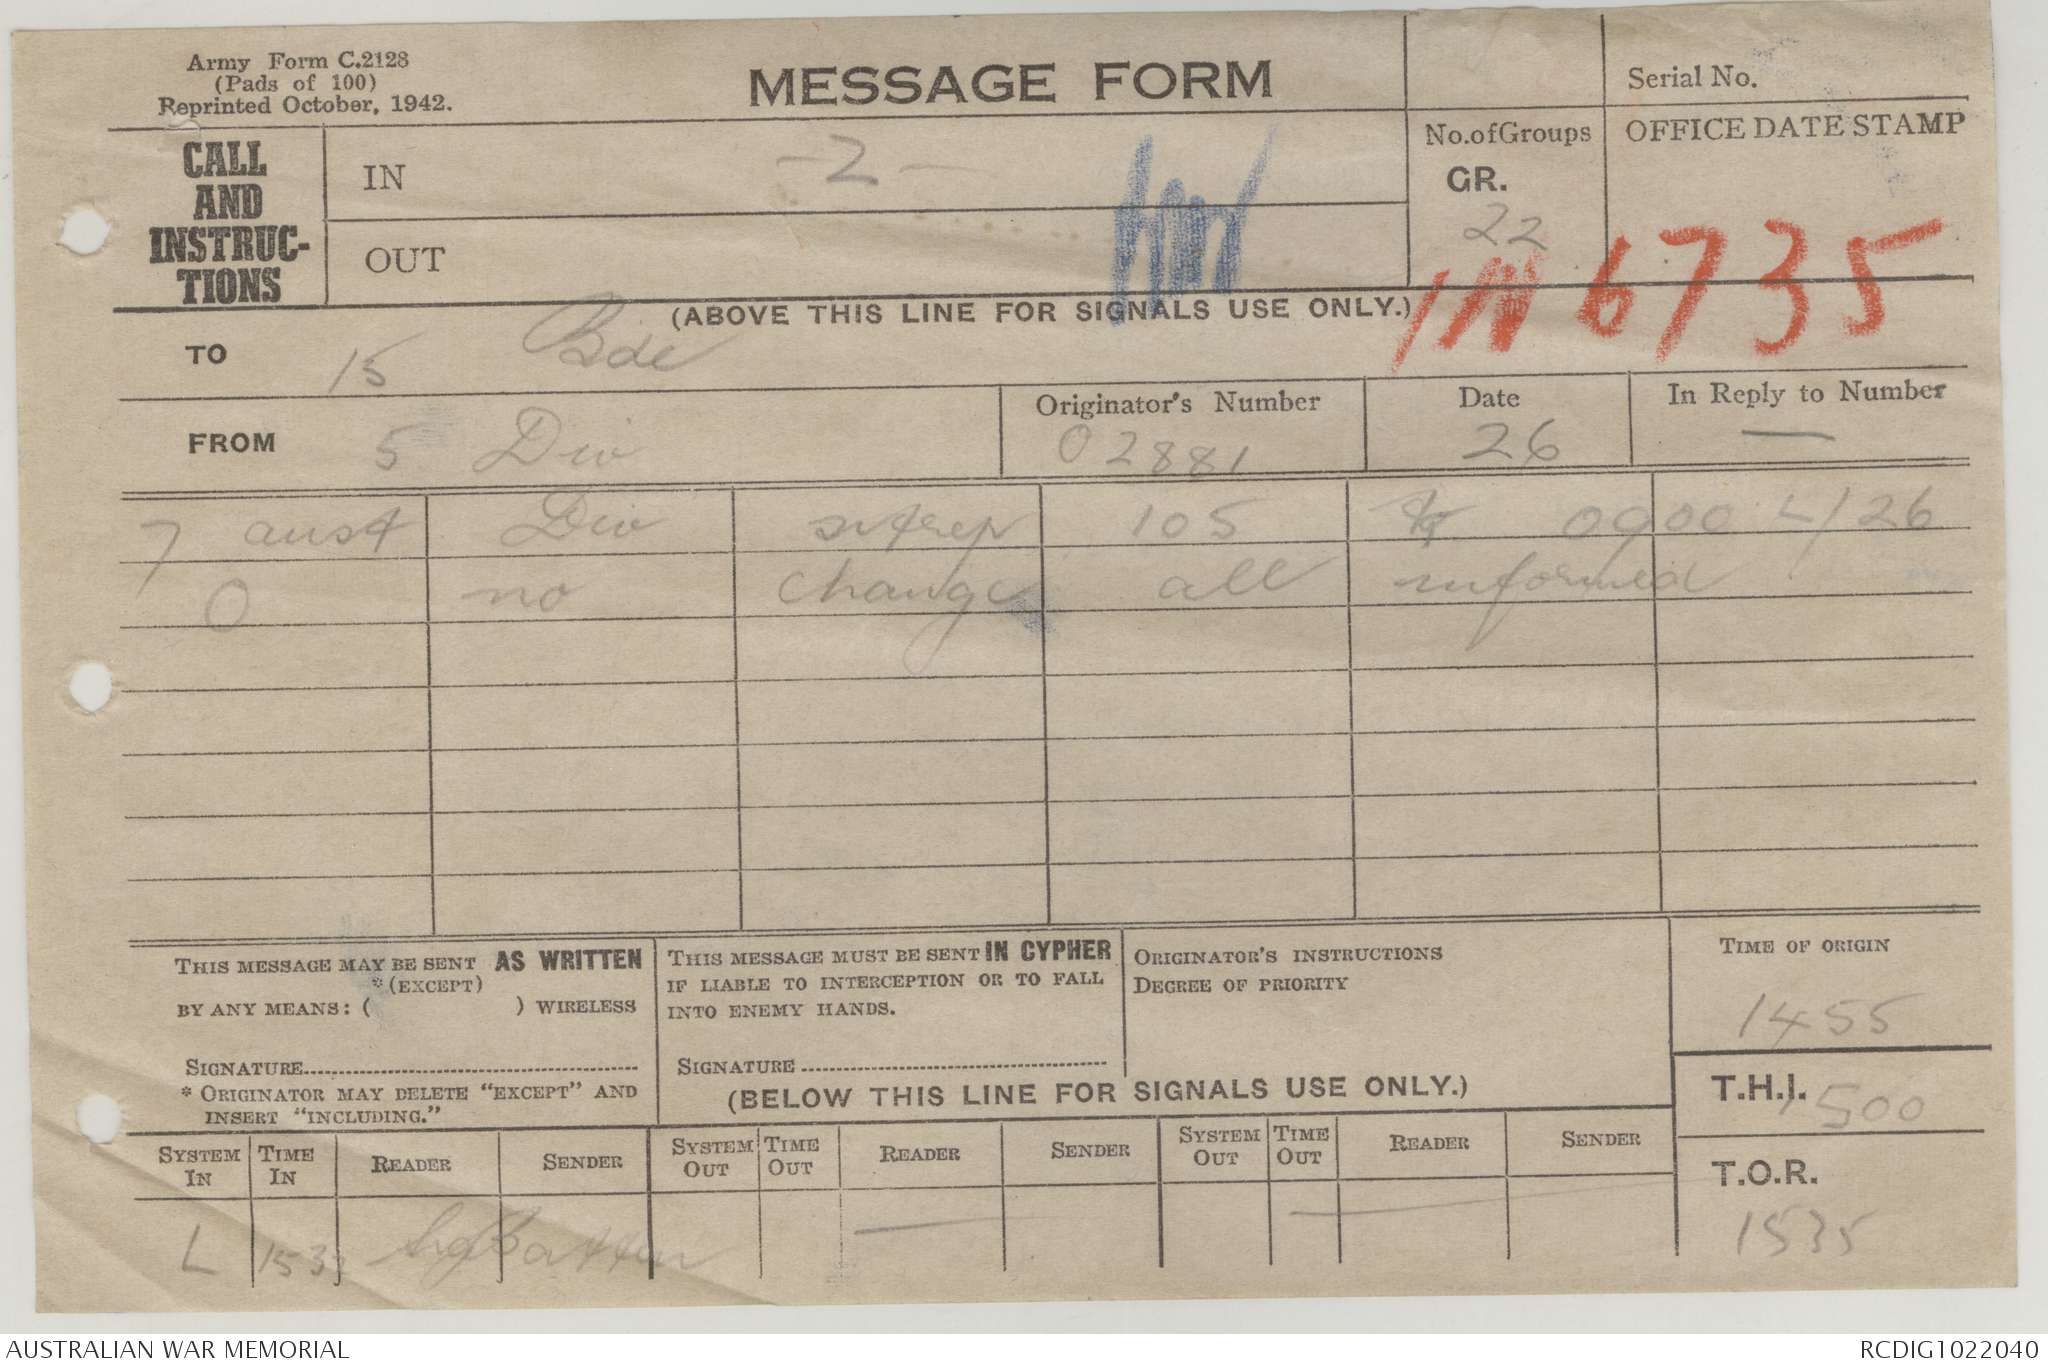 Army Form C.2128
(Pads of 100)
Reprinted October, 1942.
MESSAGE FORM
Serial No.
CALL
AND
INSTRUC-
TIONS
IN
-2-
No.of Groups
GR.
22
OFFICE DATE STAMP
OUT
IN 6735
(ABOVE THIS LINE FOR SIGNALS USE ONLY.)
TO 15 Bde
FROM 5 Div
Originator's Number
02881
Date
26
In Reply to Number
—
7 aust Div sitrep 105 0900 L/26
O no change all informed
THIS MESSAGE MAY BE SENT AS WRITTEN
*(EXCEPT)
BY ANY MEANS: ( ) WIRELESS
SIGNATURE
* ORIGINATOR MAY DELETE "EXCEPT" AND
INSERT "INCLUDING."
THIS MESSAGE MUST BE SENT IN CYPHER
IF LIABLE TO INTERCEPTION OR TO FALL
INTO ENEMY HANDS.
SIGNATURE
ORIGINATOR'S INSTRUCTIONS
DEGREE OF PRIORITY
TIME OF ORIGIN
1455
(BELOW THIS LINE FOR SIGNALS USE ONLY.)
T.H.I. 1500
T.O.R.
1535
SYSTEM IN TIME IN READER SENDER SYSTEM OUT TIME OUT READER SENDER SYSTEM OUT TIME OUT READER SENDER
L
AUSTRALIAN WAR MEMORIAL
RCDIG1022040